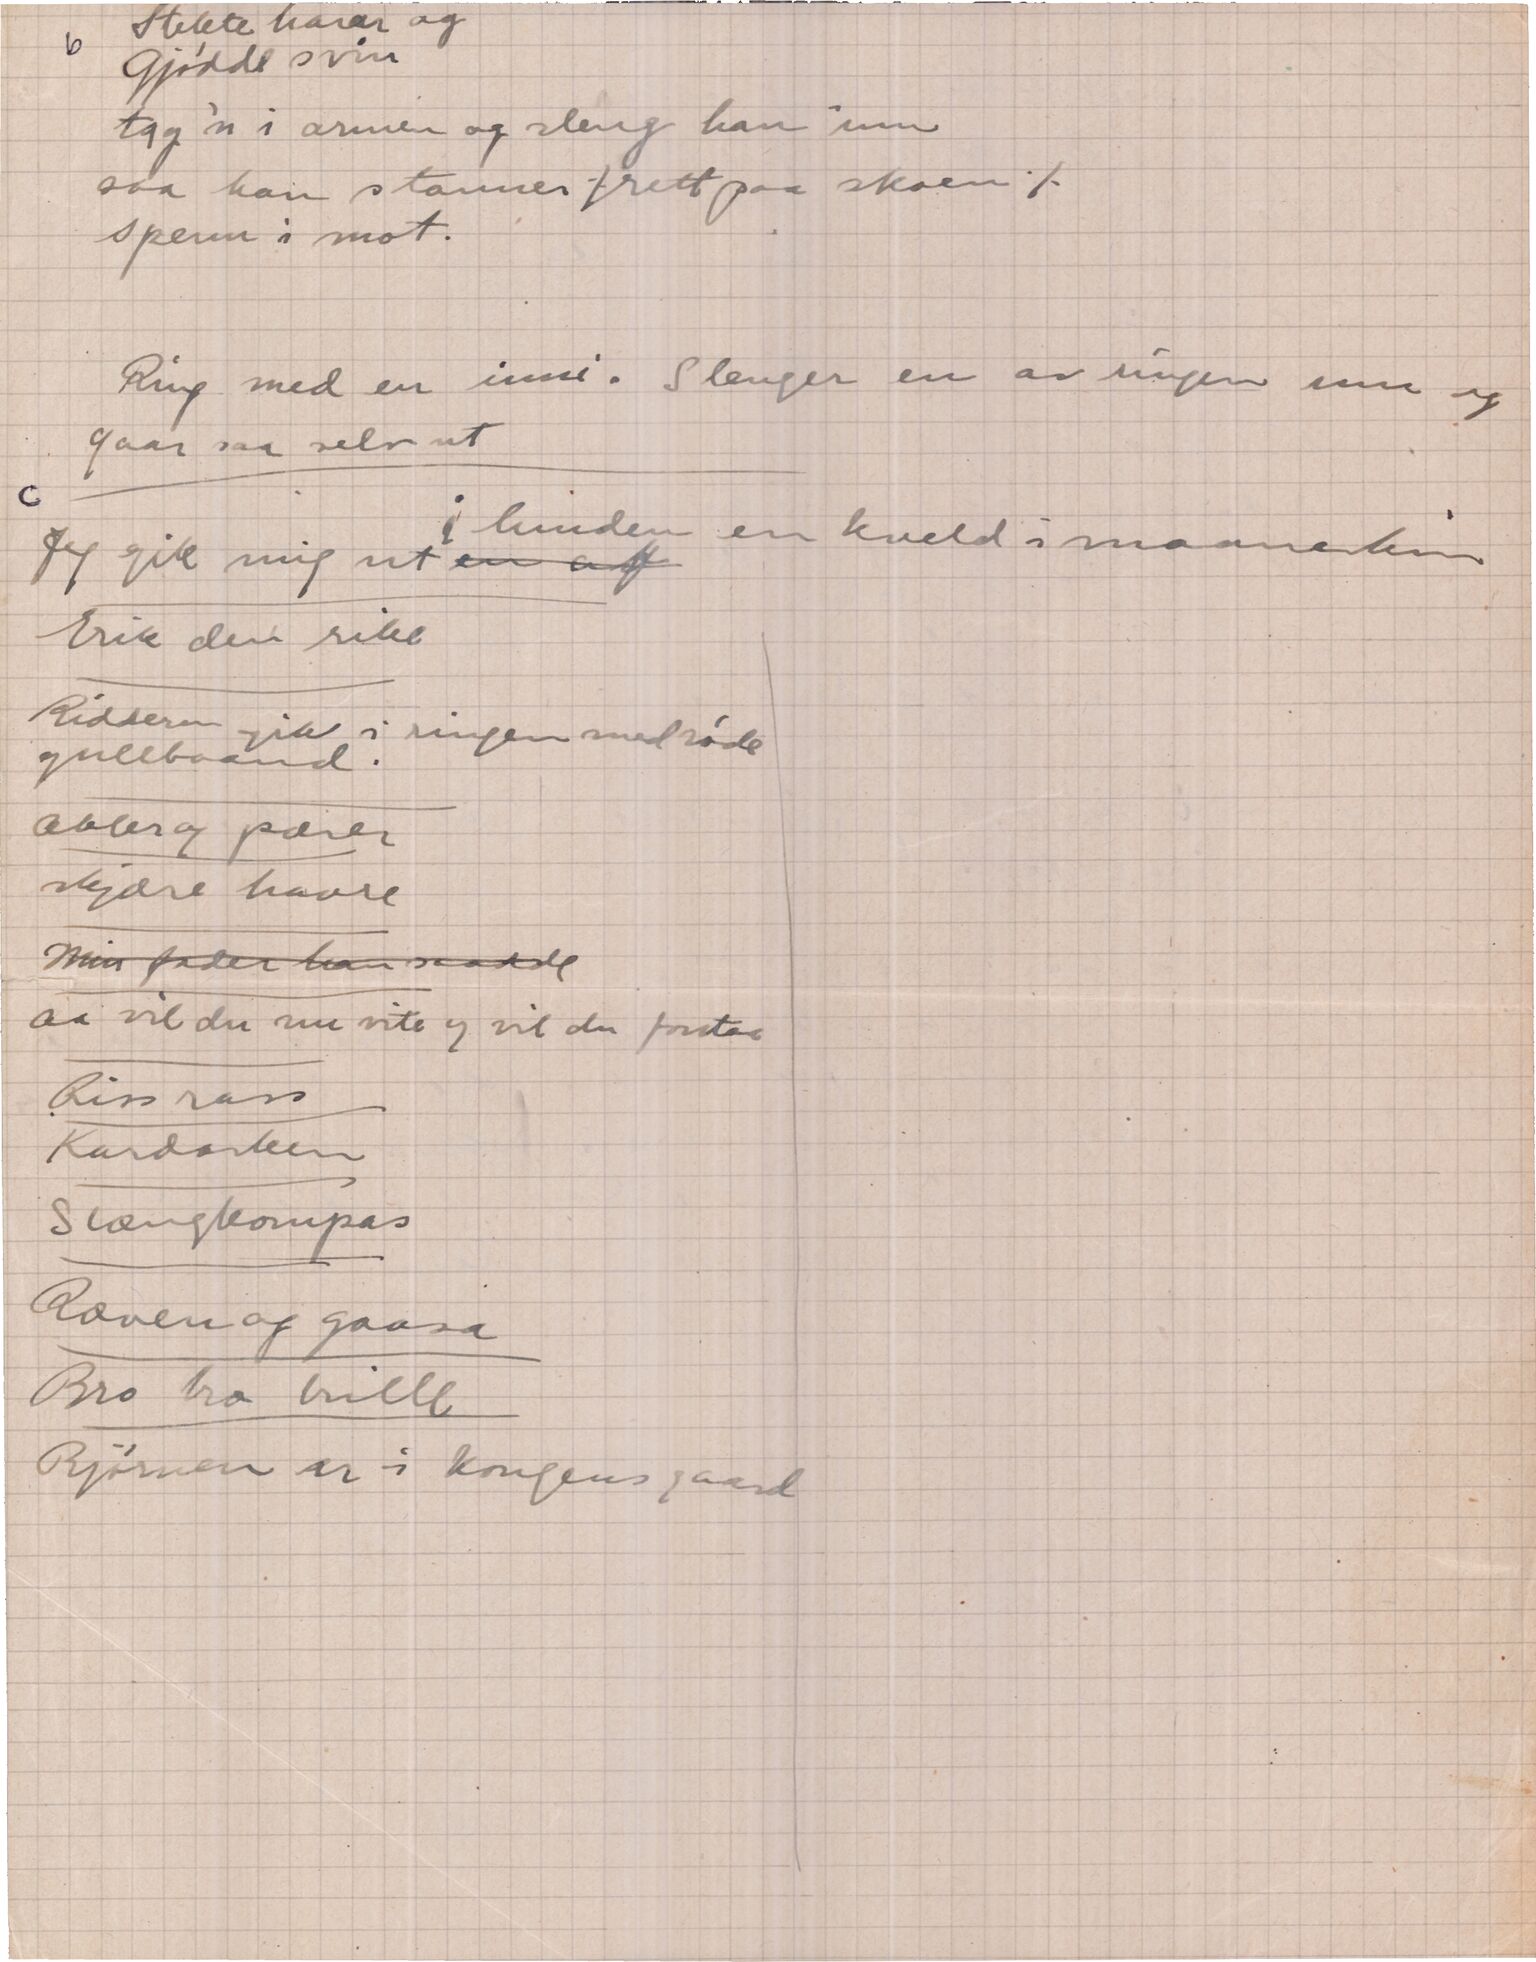 b Stekte harer og
Gjødde svin
tag'n i armen og sleng han inn
saa han stanner frett paa skoen ·/·
spenn i mot.
Ring med en inni. Slenger en av ringen inn og
gaar saa selv ut
c
Jeg gik mig ut en aft i lunden en kveld i maaneskin
Erik den rike
Ridderen gik i ringen med røde
gullbaand.
æbler og pærer
skjære havre
Min fader han saadde
aa vil du nu vite og vil du forstaa
Riss rass
Slængkompas
Ræven og gaasa
Bro bra brille
Bjørnen er i kongens gaard